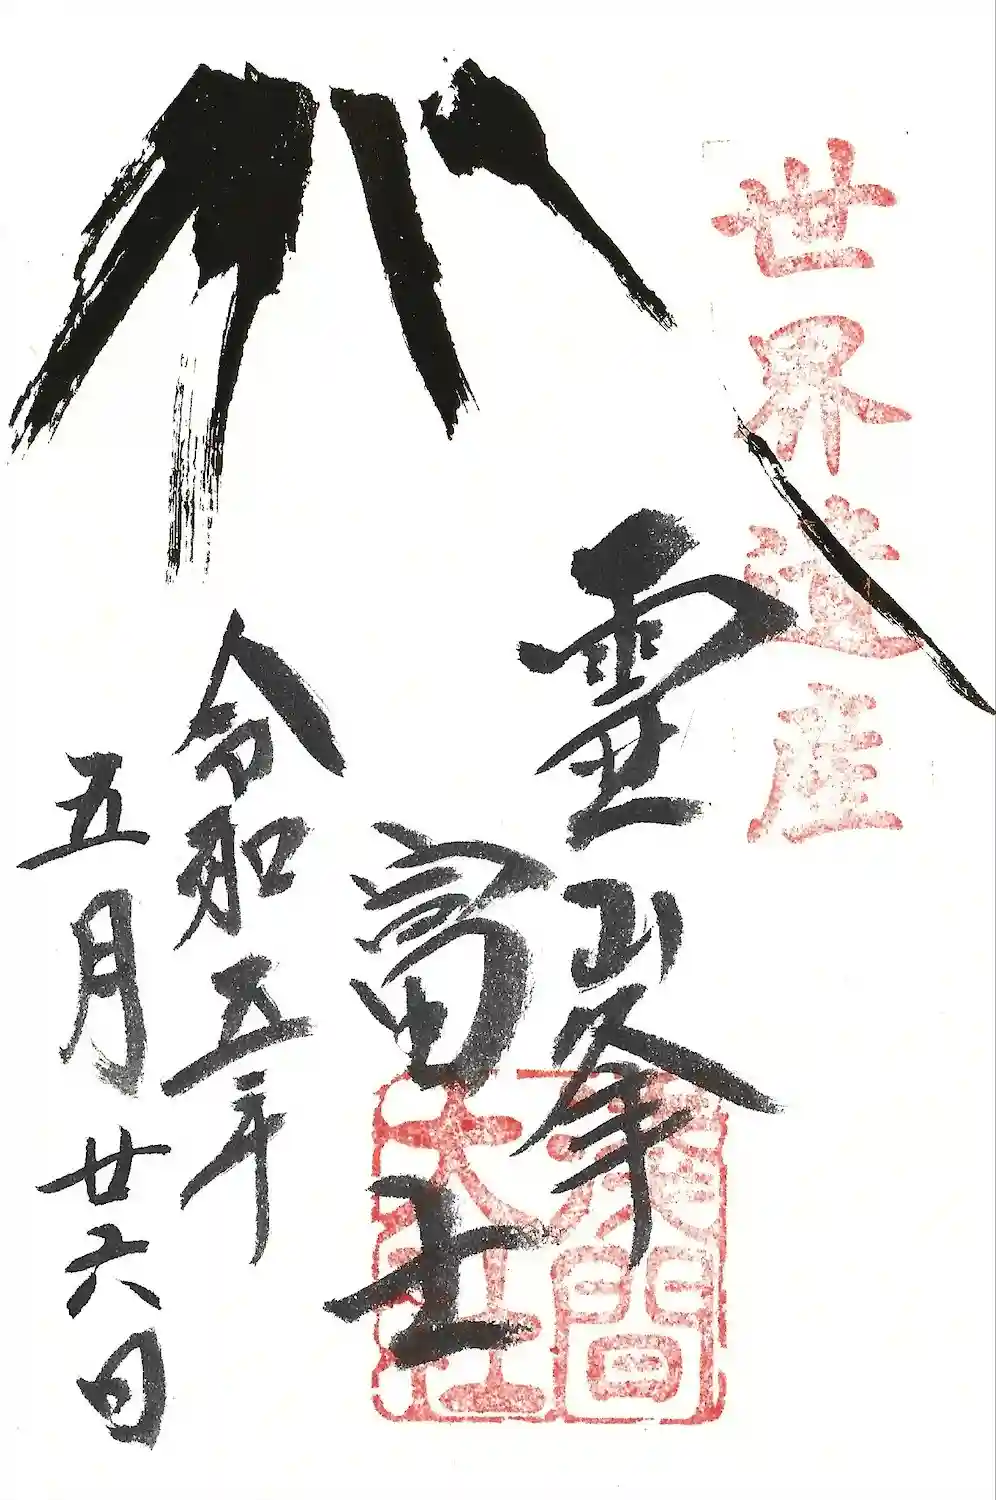 世界遺産
霊峰
富士
令和五年
五月廿六日
浅間
大社